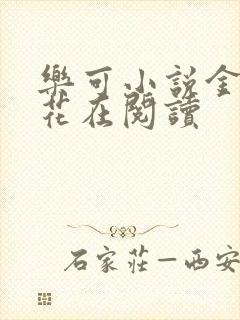 樂可小說金
花在閱讀
石家莊—西安